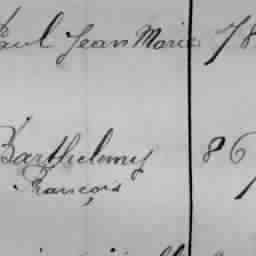 Paul Jean Marie 78
Barthelemy 86
François